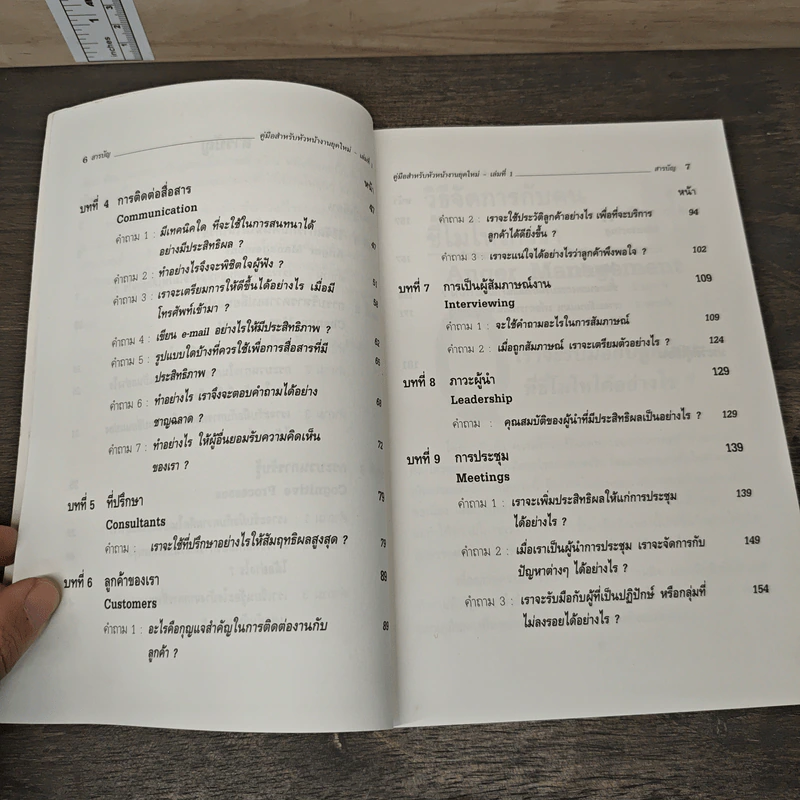 inches
1
2
3
6 สารบัญ
คู่มือสำหรับหัวหน้างานยุคใหม่ - เล่มที่ 1
หน้า
บทที่ 4 การติดต่อสื่อสาร 47
Communication
คำถาม 1 : มีเทคนิคใด ที่จะใช้ในการสนทนาได้ 47
อย่างมีประสิทธิผล ?
คำถาม 2 : ทำอย่างไรจึงจะพิชิตใจผู้ฟัง ? 51
คำถาม 3 : เราจะเตรียมการให้ดีขึ้นได้อย่างไร เมื่อมี 58
โทรศัพท์เข้ามา ?
คำถาม 4 : เขียน e-mail อย่างไรให้มีประสิทธิภาพ ? 62
คำถาม 5 : รูปแบบใดบ้างที่ควรใช้เพื่อการสื่อสารที่มี 66
ประสิทธิภาพ ?
คำถาม 6 : ทำอย่างไร เราจึงจะตอบคำถามได้อย่าง 68
ชาญฉลาด ?
คำถาม 7 : ทำอย่างไร ให้ผู้อื่นยอมรับความคิดเห็น 72
ของเรา ?
บทที่ 5 ที่ปรึกษา 79
Consultants
คำถาม : เราจะใช้ที่ปรึกษาอย่างไรให้สัมฤทธิผลสูงสุด ? 79
บทที่ 6 ลูกค้าของเรา 89
Customers
คำถาม 1 : อะไรคือกุญแจสำคัญในการติดต่องานกับ 89
ลูกค้า ?
คู่มือสำหรับหัวหน้างานยุคใหม่ - เล่มที่ 1
สารบัญ 7
หน้า
คำถาม 2 : เราจะใช้ประวัติลูกค้าอย่างไร เพื่อที่จะบริการ 94
ลูกค้าได้ดียิ่งขึ้น ?
คำถาม 3 : เราจะแน่ใจได้อย่างไรว่าลูกค้าพึงพอใจ ? 102
บทที่ 7 การเป็นผู้สัมภาษณ์งาน 109
Interviewing
คำถาม 1 : จะใช้คำถามอะไรในการสัมภาษณ์ 109
คำถาม 2 : เมื่อถูกสัมภาษณ์ เราจะเตรียมตัวอย่างไร ? 124
บทที่ 8 ภาวะผู้นำ 129
Leadership
คำถาม : คุณสมบัติของผู้นำที่มีประสิทธิผลเป็นอย่างไร ? 129
บทที่ 9 การประชุม 139
Meetings
คำถาม 1 : เราจะเพิ่มประสิทธิผลให้แก่การประชุม 139
ได้อย่างไร ?
คำถาม 2 : เมื่อเราเป็นผู้นำการประชุม เราจะจัดการกับ 149
ปัญหาต่างๆ ได้อย่างไร ?
คำถาม 3 : เราจะรับมือกับผู้ที่เป็นปฏิปักษ์ หรือกลุ่มที่ 154
ไม่ลงรอยได้อย่างไร ?